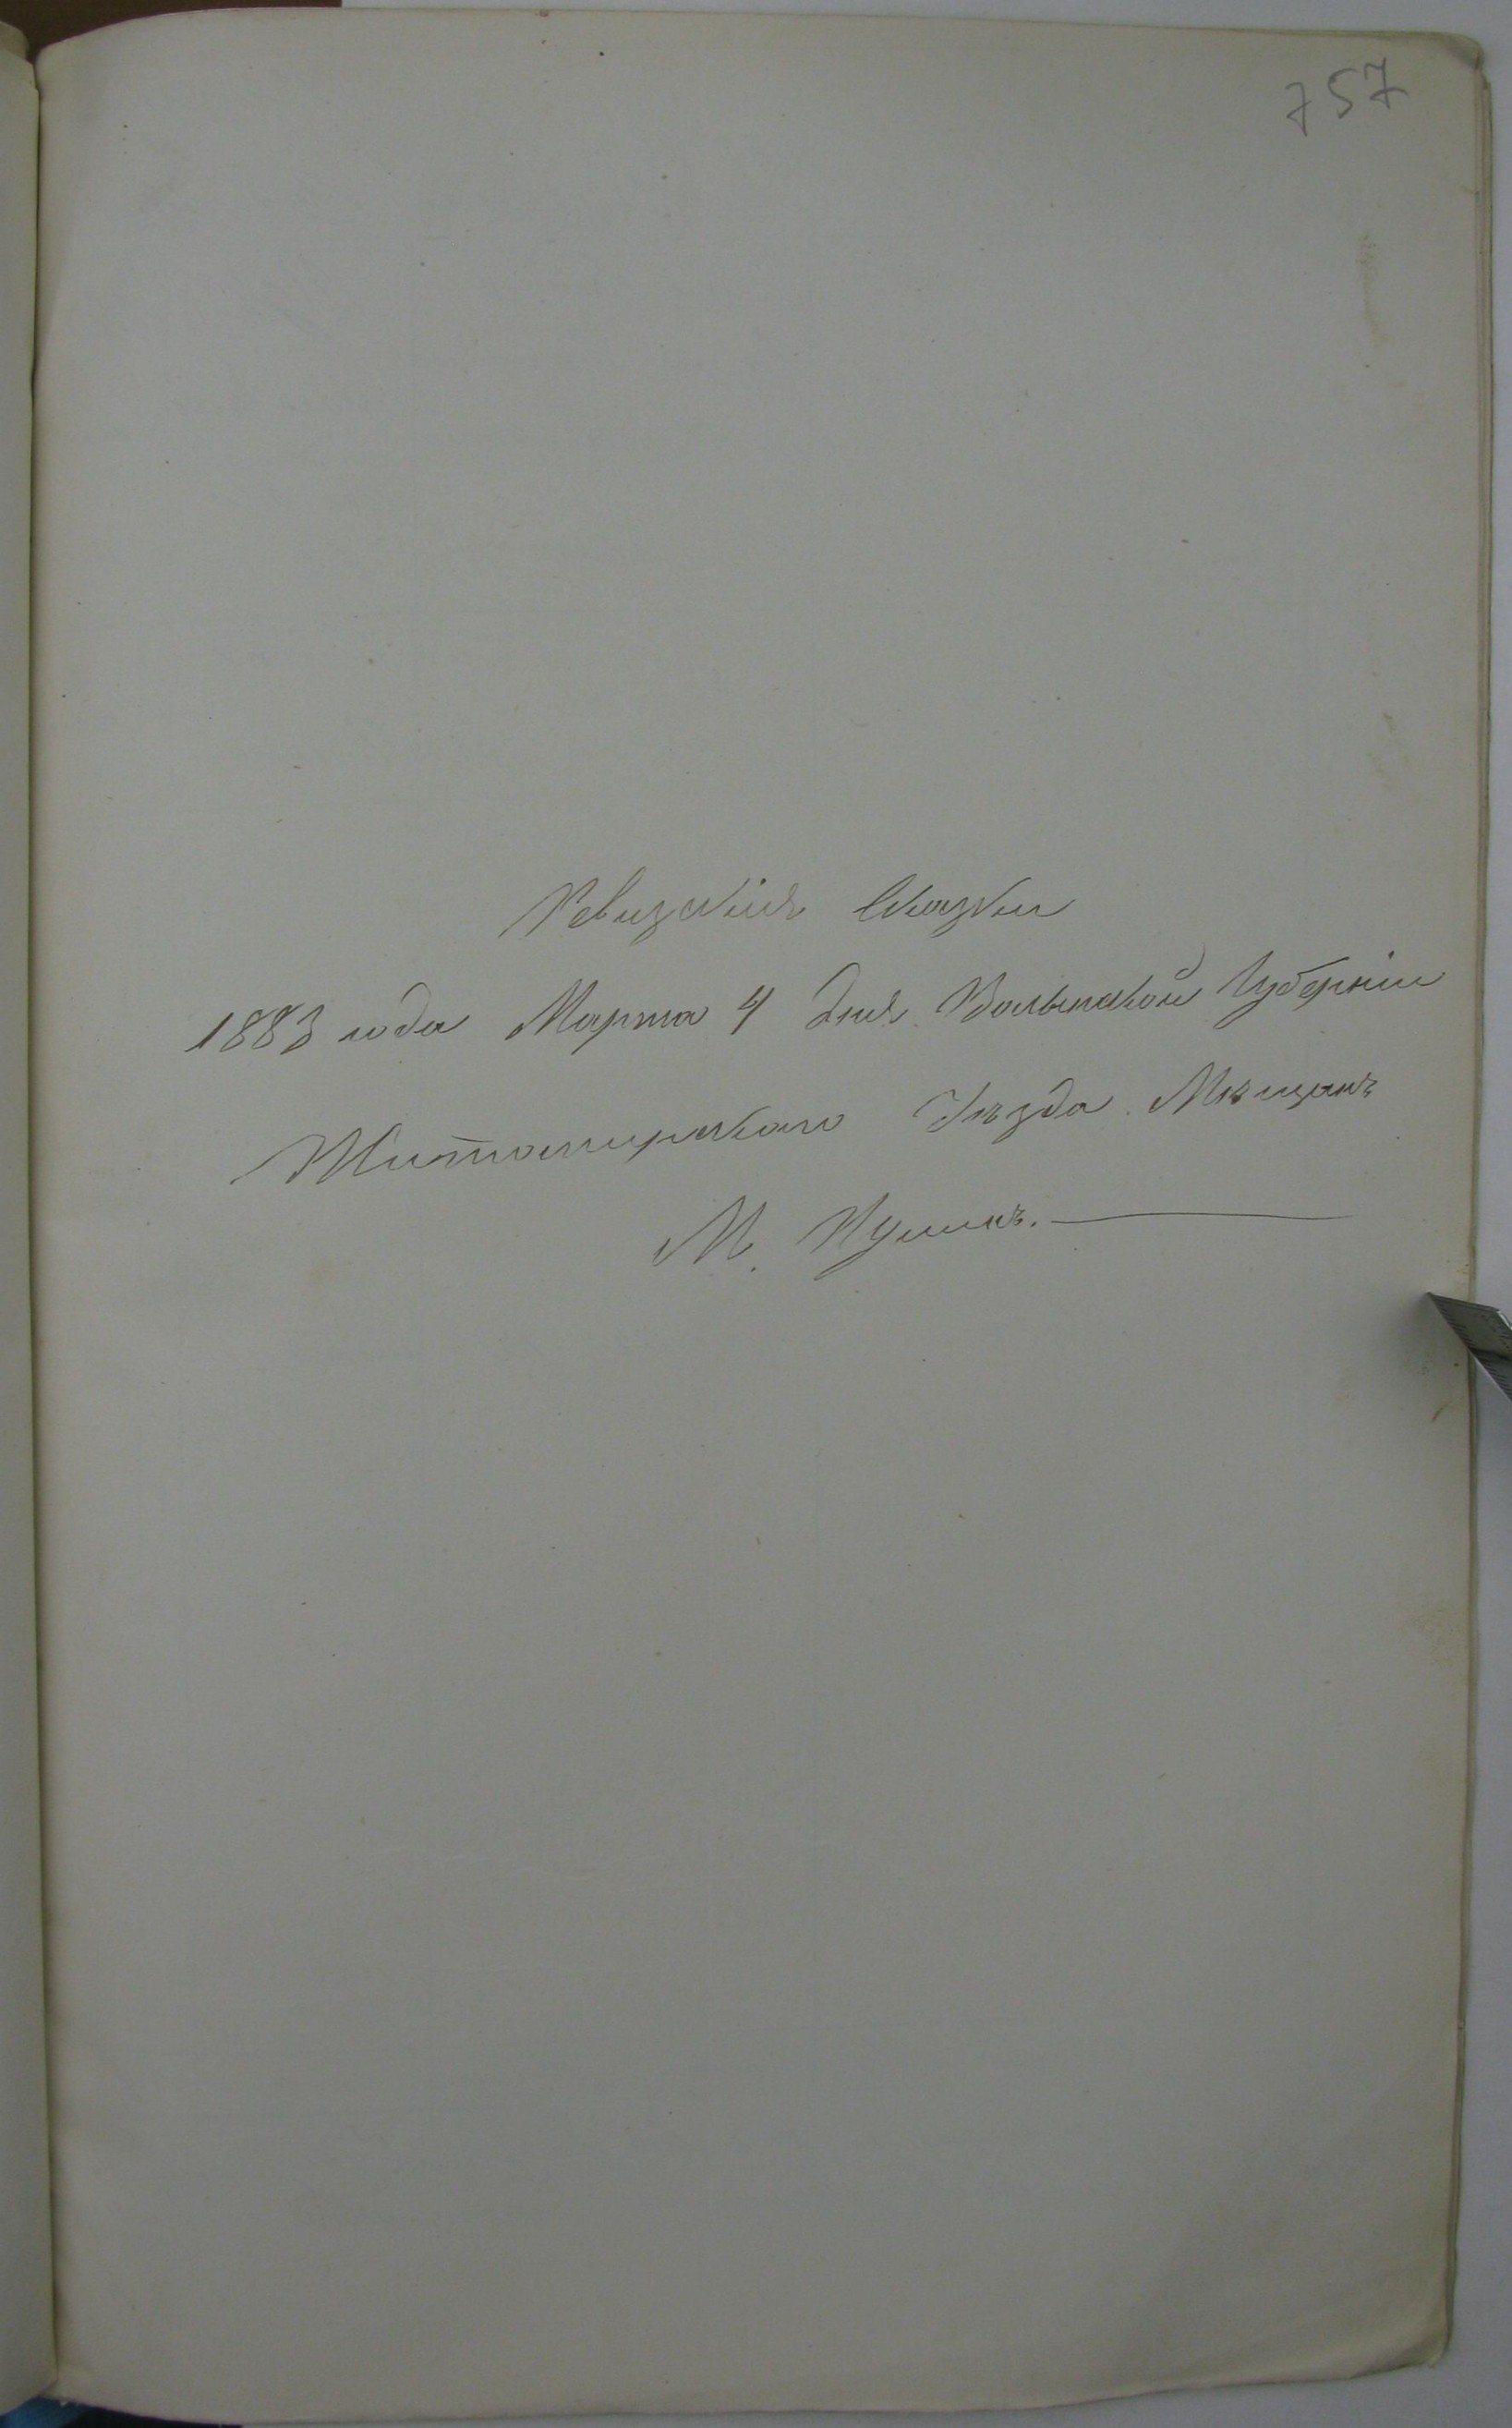 757
Ревизскія Сказки
1883 года Марта 4 дня Волынской Губерніи
Житомирскаго Уѣзда Мѣщанъ
М. Пулинъ.